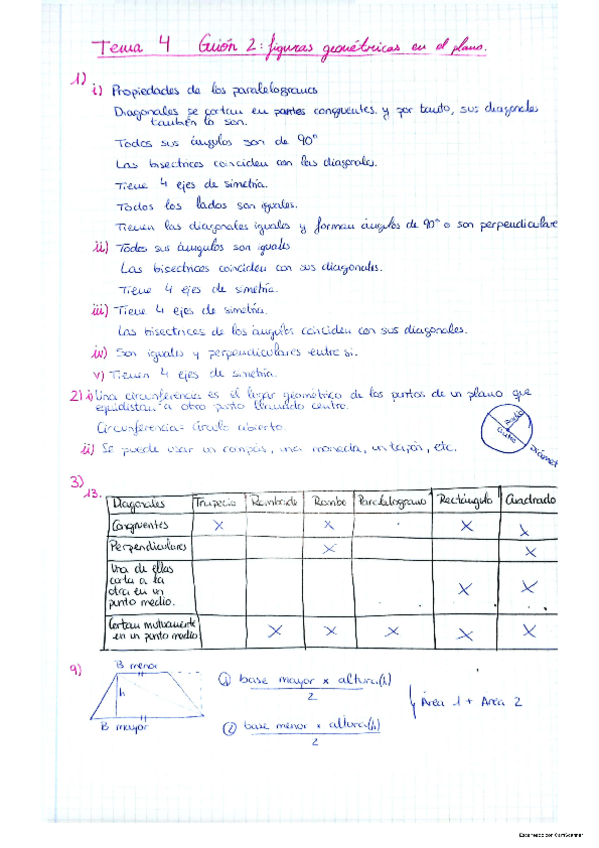 Tema 4 Guión 2: figuras geométricas en el plano.
1)
i) Propiedades de los paralelogramos
Diagonales se cortan en partes congruentes y por tanto, sus diagonales
también lo son.
Todos sus ángulos son de 90º
Las bisectrices coinciden con las diagonales.
Tiene 4 ejes de simetría.
Todos los lados son iguales.
Tienen las diagonales iguales y forman ángulos de 90º o son perpendiculare
ii) Todos sus ángulos son iguales
Las bisectrices coinciden con sus diagonales.
Tiene 4 ejes de simetría.
iii) Tiene 4 ejes de simetría.
Las bisectrices de los ángulos coinciden con sus diagonales.
iv) Son iguales y perpendiculares entre si.
v) Tienen 4 ejes de simetría.
2) i) Una circunferencia es el lugar geométrico de los puntos de un plano que
equidistan a otro punto llamado centro.
Circunferencia = círculo abierto.
Radio
Centro
ii) Se puede usar un compás, una moneda, un tapón, etc.
3)
13.
Diagonales Trapecio Romboide Rombo Paralelogramo Rectángulo Cuadrado
Congruentes X X X X
Perpendiculares X X
Una de ellas
corta a la
otra en un
punto medio. X X
Cortan mutuamente
en un punto medio X X X X X
9)
B menor
h
B mayor
① base mayor x altura(h)
2
② base menor x altura(h)
2
Área 1 + Area 2
Escaneado con CamScanner